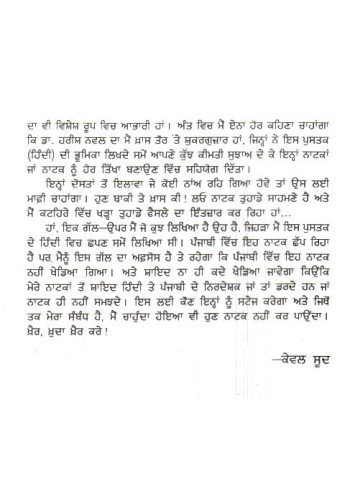 ਦਾ ਵੀ ਵਿਸ਼ੇਸ਼ ਰੂਪ ਵਿਚ ਆਭਾਰੀ ਹਾਂ। ਅੰਤ ਵਿਚ ਮੈਂ ਏਨਾ ਹੋਰ ਕਹਿਣਾ ਚਾਹਾਂਗਾ
ਕਿ ਡਾ. ਹਰੀਸ਼ ਨਵਲ ਦਾ ਮੈਂ ਖ਼ਾਸ ਤੌਰ 'ਤੇ ਸ਼ੁਕਰਗੁਜ਼ਾਰ ਹਾਂ, ਜਿਨ੍ਹਾਂ ਨੇ ਇਸ ਪੁਸਤਕ
(ਹਿੰਦੀ) ਦੀ ਭੂਮਿਕਾ ਲਿਖਦੇ ਸਮੇਂ ਆਪਣੇ ਕੁੱਝ ਕੀਮਤੀ ਸੁਝਾਅ ਦੇ ਕੇ ਇਨ੍ਹਾਂ ਨਾਟਕਾਂ
ਜਾਂ ਨਾਟਕ ਨੂੰ ਹੋਰ ਤਿੱਖਾ ਬਣਾਉਣ ਵਿੱਚ ਸਹਿਯੋਗ ਦਿੱਤਾ।
ਇਨ੍ਹਾਂ ਦੋਸਤਾਂ ਤੋਂ ਇਲਾਵਾ ਜੇ ਕੋਈ ਨਾਂਅ ਰਹਿ ਗਿਆ ਹੋਵੇ ਤਾਂ ਉਸ ਲਈ
ਮਾਫ਼ੀ ਚਾਹਾਂਗਾ। ਹੁਣ ਬਾਕੀ ਤੇ ਖ਼ਾਸ ਕੀ! ਲਓ ਨਾਟਕ ਤੁਹਾਡੇ ਸਾਹਮਣੇ ਹੈ ਅਤੇ
ਮੈਂ ਕਟਹਿਰੇ ਵਿੱਚ ਖੜ੍ਹਾ ਤੁਹਾਡੇ ਫੈਸਲੇ ਦਾ ਇੰਤਜ਼ਾਰ ਕਰ ਰਿਹਾ ਹਾਂ...
ਹਾਂ, ਇਕ ਗੱਲ—ਉਪਰ ਮੈਂ ਜੋ ਕੁਝ ਲਿਖਿਆ ਹੈ ਉਹ ਹੈ, ਜਿਹੜਾ ਮੈਂ ਇਸ ਪੁਸਤਕ
ਦੇ ਹਿੰਦੀ ਵਿਚ ਛਪਣ ਸਮੇਂ ਲਿਖਿਆ ਸੀ। ਪੰਜਾਬੀ ਵਿੱਚ ਇਹ ਨਾਟਕ ਛੱਪ ਰਿਹਾ
ਹੈ ਪਰ, ਮੈਨੂੰ ਇਸ ਗੱਲ ਦਾ ਅਫ਼ਸੋਸ ਹੈ ਤੇ ਰਹੇਗਾ ਕਿ ਪੰਜਾਬੀ ਵਿੱਚ ਇਹ ਨਾਟਕ
ਨਹੀਂ ਖੇਡਿਆ ਗਿਆ। ਅਤੇ ਸ਼ਾਇਦ ਨਾ ਹੀ ਕਦੇ ਖੇਡਿਆ ਜਾਵੇਗਾ ਕਿਉਂਕਿ
ਮੇਰੇ ਨਾਟਕਾਂ ਤੋਂ ਸ਼ਾਇਦ ਹਿੰਦੀ ਤੇ ਪੰਜਾਬੀ ਦੇ ਨਿਰਦੇਸ਼ਕ ਜਾਂ ਤਾਂ ਡਰਦੇ ਹਨ ਜਾਂ
ਨਾਟਕ ਹੀ ਨਹੀਂ ਸਮਝਦੇ। ਇਸ ਲਈ ਕੌਣ ਇਨ੍ਹਾਂ ਨੂੰ ਸਟੇਜ ਕਰੇਗਾ ਅਤੇ ਜਿਥੋਂ
ਤਕ ਮੇਰਾ ਸੰਬੰਧ ਹੈ, ਮੈਂ ਚਾਹੁੰਦਾ ਹੋਇਆ ਵੀ ਹੁਣ ਨਾਟਕ ਨਹੀਂ ਕਰ ਪਾਉਂਦਾ।
ਖ਼ੈਰ, ਖ਼ੁਦਾ ਖ਼ੈਰ ਕਰੇ!
—ਕੇਵਲ ਸੂਦ